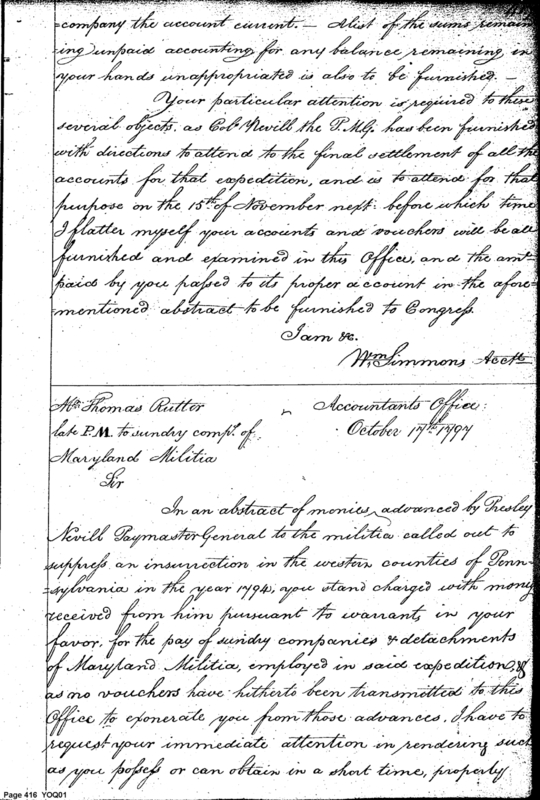 =company the account current. — A list of the sums remain
ing unpaid accounting for any balance remaining in
your hands unappropriated is also to be furnished. —
Your particular attention is required to these
several objects. as Colo. Nevill the P.M.G. has been furnished
with directions to attend to the final settlement of all the
accounts for that expedition, and is to attend for that
purpose on the 15th of November next: before which time
I flatter myself your accounts and vouchers will be all
furnished and examined in this Office, and the amt.
paid by you passed to its proper account in the afore=
=mentioned abstract to be furnished to Congress.
I am &c.
Wm Simmons Acctt
Mr Thomas Rutter
Accountants Office
late P.M. to sundry comps. of
October 17th 1797
Maryland Militia
Sir
In an abstract of monies advanced by Presley
Nevill Paymaster General to the militia called out to
suppress an insurrection in the western counties of Penn=
=sylvania in the year 1794, you stand charged with money
received from him pursuant to warrants in your
favor, for the pay of sundry companies & detachments
of Maryland Militia, employed in said expedition, &
as no vouchers have hitherto been transmitted to this
Office to exonerate you from those advances, I have to
request your immediate attention in rendering such
as you possess or can obtain in a short time, property
Page 416 YOQ01